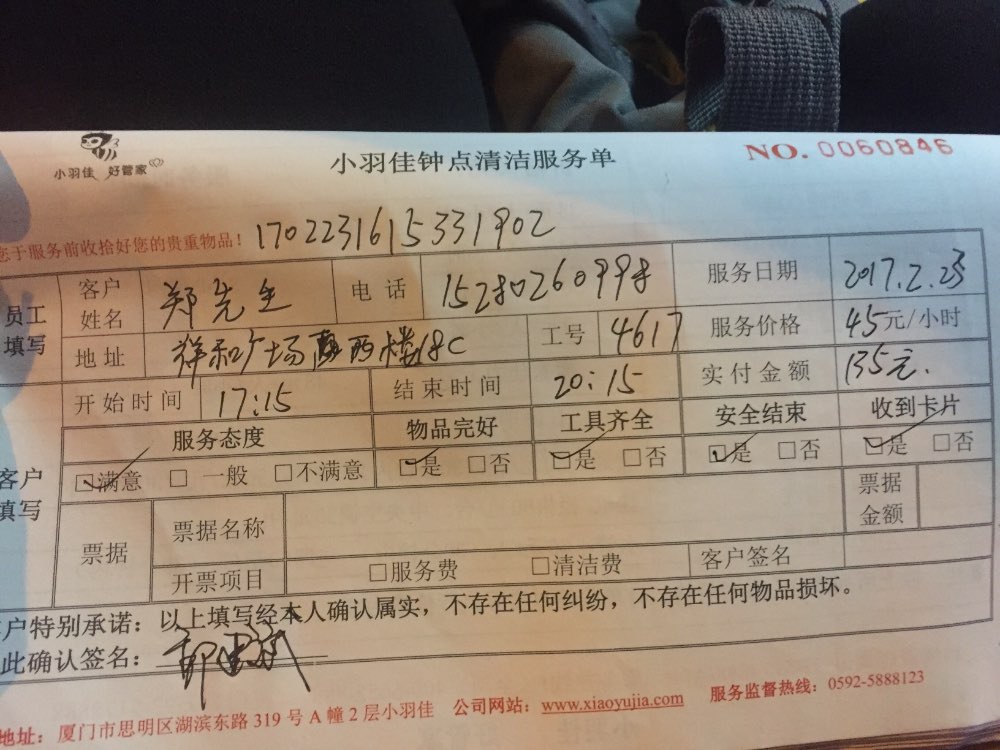 小羽佳 好管家
小羽佳钟点清洁服务单
NO. 0060846
您于服务前收拾好您的贵重物品! 1702231615331902
员工填写 客户姓名 郑先生 电话 15280260998 服务日期 2017.2.23
地址 祥和广场 西楼18C 工号 4617 服务价格 45元/小时
开始时间 17:15 结束时间 20:15 实付金额 135元.
服务态度 物品完好 工具齐全 安全结束 收到卡片
客户填写 ☑满意 □一般 □不满意 ☑是 □否 ☑是 □否 ☑是 □否 ☑是 □否
票据 票据名称 票据金额
开票项目 □服务费 □清洁费 客户签名
客户特别承诺：以上填写经本人确认属实，不存在任何纠纷，不存在任何物品损坏。
此确认签名：
地址：厦门市思明区湖滨东路 319 号 A 幢 2 层小羽佳 公司网站：www.xiaoyujia.com 服务监督热线：0592-5888123